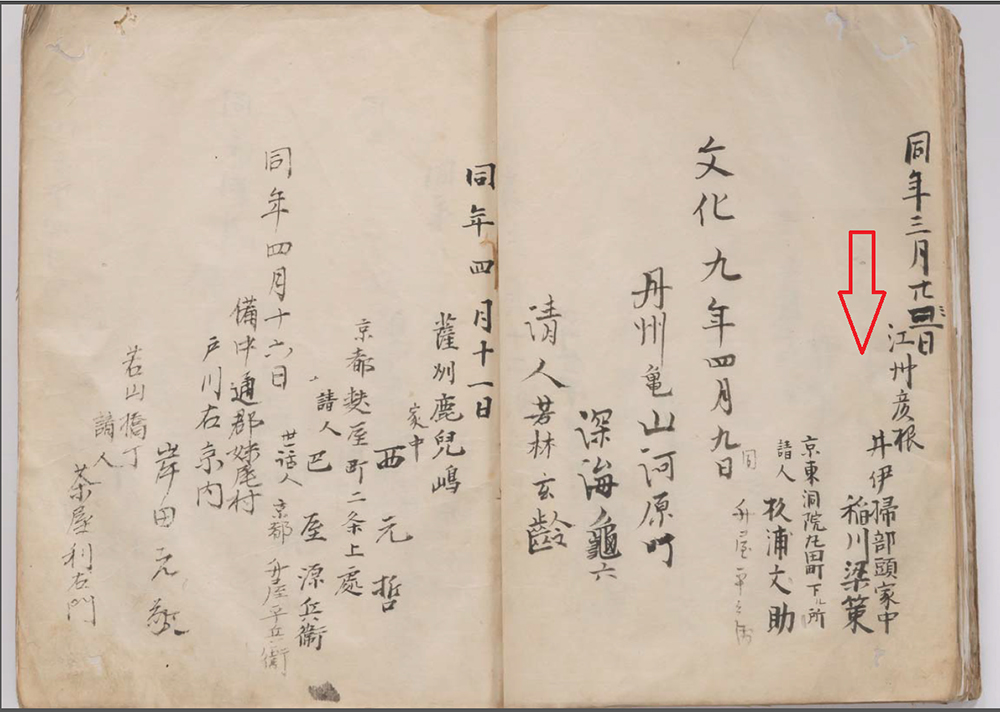 同年三月廿四日
江州彦根
井伊掃部頭家中
稲川梁策
京東洞院丸田町下ル所
請人 杉浦文助
同 舟屋平兵衛
文化九年四月九日
丹州亀山河原町
深海龜六
請人若林玄齢
同年四月十一日
薩州鹿兒嶋
家中
西元哲
京都麩屋町二条上處
請人 巴屋源兵衛
世話人 京都 舟屋平兵衛
同年四月十六日
備中通郡妹尾村
戸川右京内
岸田元敬
若山橋丁
請人
茶屋利右門